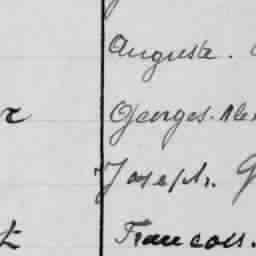 Auguste.
Georges-Alex
Joseph. G
Francois.